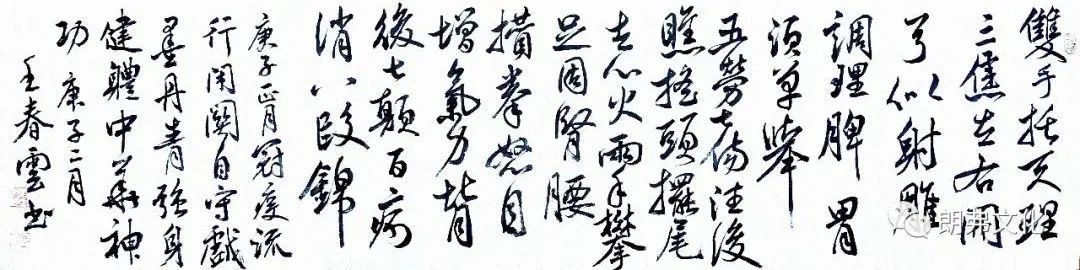 雙手托天理
三焦左右開
弓似射雕
調理脾胃
須單舉
五勞七傷往後
瞧搖頭擺尾
去心火兩手攀
足固腎腰
攢拳怒目
增氣力背
後七顛百病
消八段錦
庚子正月冠疫流
行閉關自守戲
墨丹青強身
健體中華神
功 庚子二月
王春雲书
朗弗文化